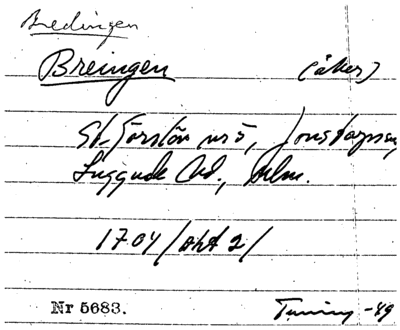 Bredingen
Breingen (åker)
St. Förslöv nr 5, Jonstorps sn,
Luggude hd., Mlm.
1704 /akt 2/
Nr 5683. Tuning -49